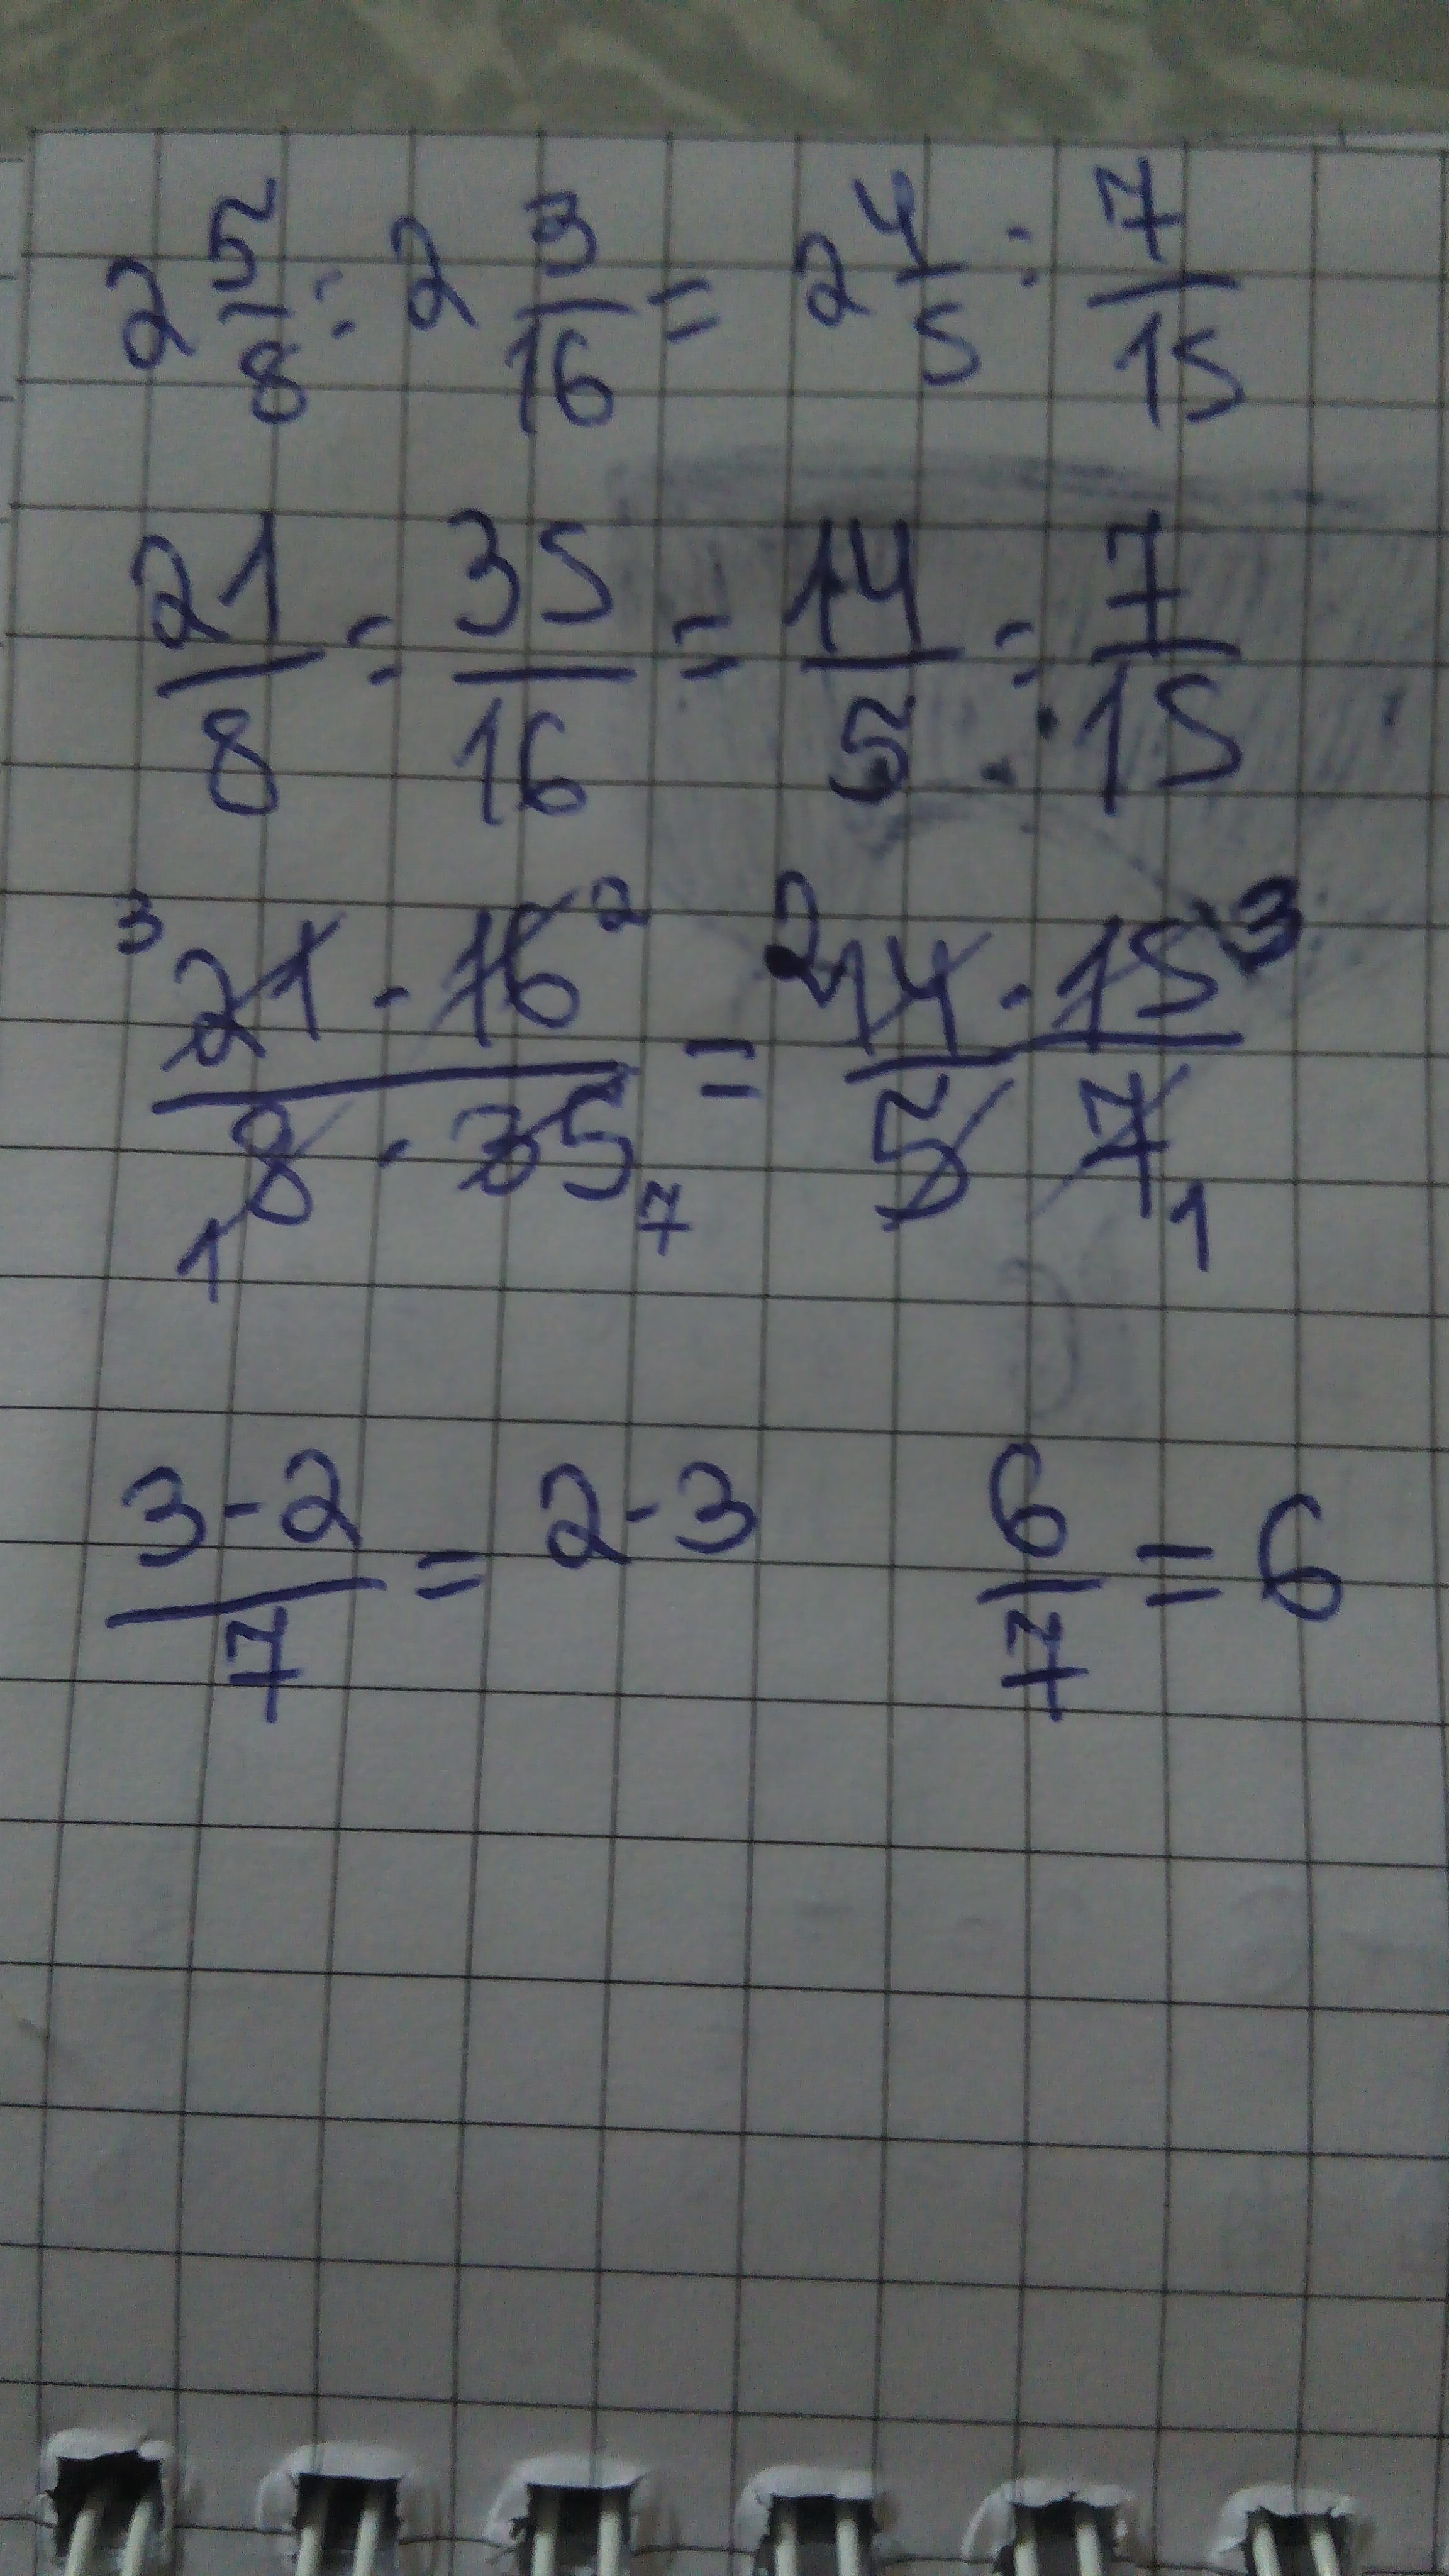 2 5/8 : 2 3/16 = 2 4/5 : 7/15
21/8 : 35/16 = 14/5 : 7/15
3 21 · 16 2 / 1 8 · 35 7 = 2 14 · 15 3 / 5 7 1
3 · 2 / 7 = 2 · 3    6/7 = 6